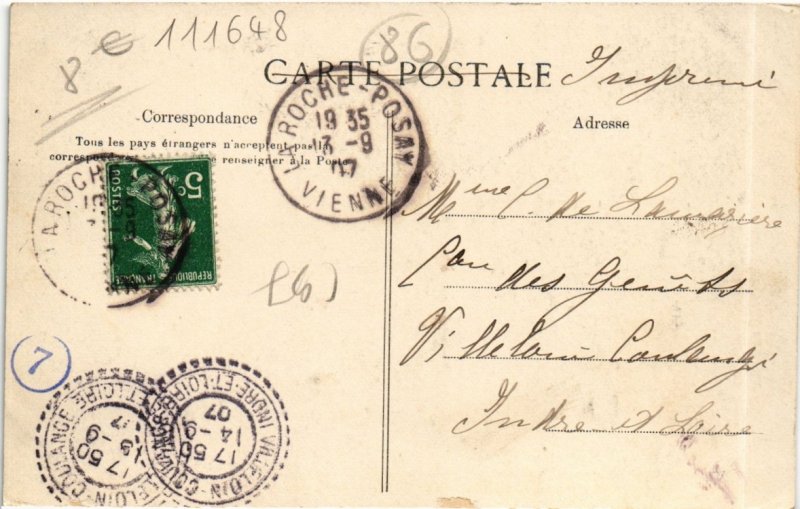 8€ 111648
86
CARTE POSTALE
Imprimé
Correspondance
Adresse
Tous les pays étrangers n'acceptent pas la
correspon renseigner à la Poste
LA ROCHE-POSAY
19 35
13 -9
07
VIENNE
LA ROCHE-POSAY
5c
POSTES
REPUBLIQUE FRANÇAISE
Mme C. de Lamarzière
des Genêts
Villeloin Coulangé
Indre et Loire
(86)
7
VILLELOIN-COULANGÉ
17 50
13 -9
07
ET-LOIRE
VILLELOIN-COULANGÉ
17 50
14 -9
07
INDRE-ET-LOIRE